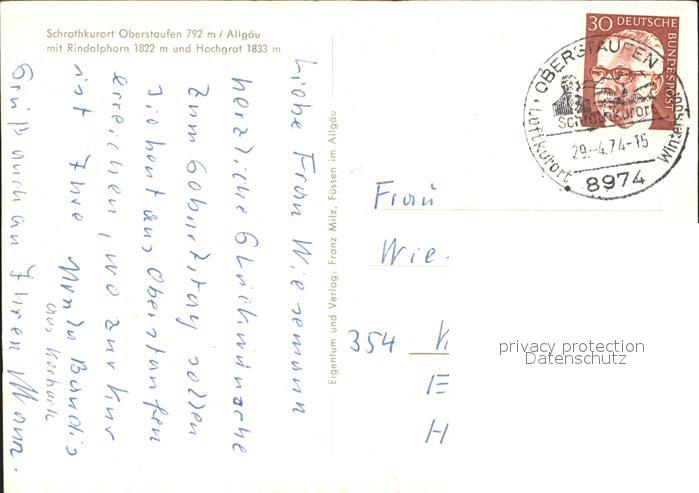 Schrothkurort Oberstaufen 792 m / Allgäu
mit Rindalphorn 1822 m und Hochgrat 1833 m
Liebe Frau Wiesemann
herzliche Glückwünsche
zum Geburtstag sollen
Sie heut aus Oberstaufen
erreichen, wo zur Kur
ist Ihre
aus Korbach
Gruß auch an Ihren Mann.
Eigentum und Verlag: Franz Milz, Füssen im Allgäu
30 DEUTSCHE
BUNDESPOST
OBERSTAUFEN
Schrothkurort
Luftkurort
Wintersport
29.-4.74-15
8974
Frau
Wie
354 K
E
H
privacy protection
Datenschutz